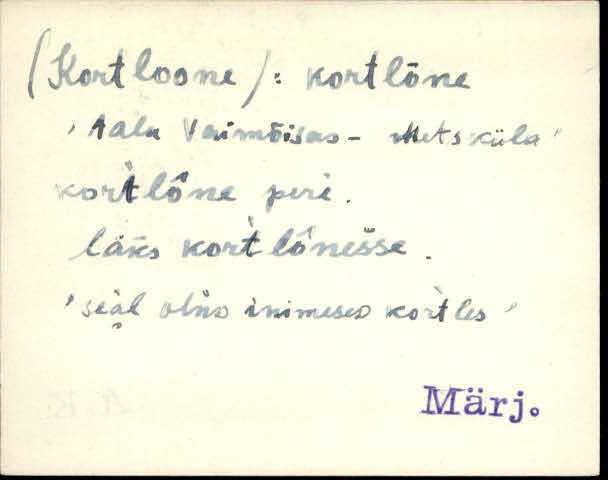 (Kortloone): kortlōne
'talu Vaimõisas - Metsküla'
kor̀tlône peri.
läks kor̀tlônešše.
'seäl olnd inimesed kortles'
Märj.